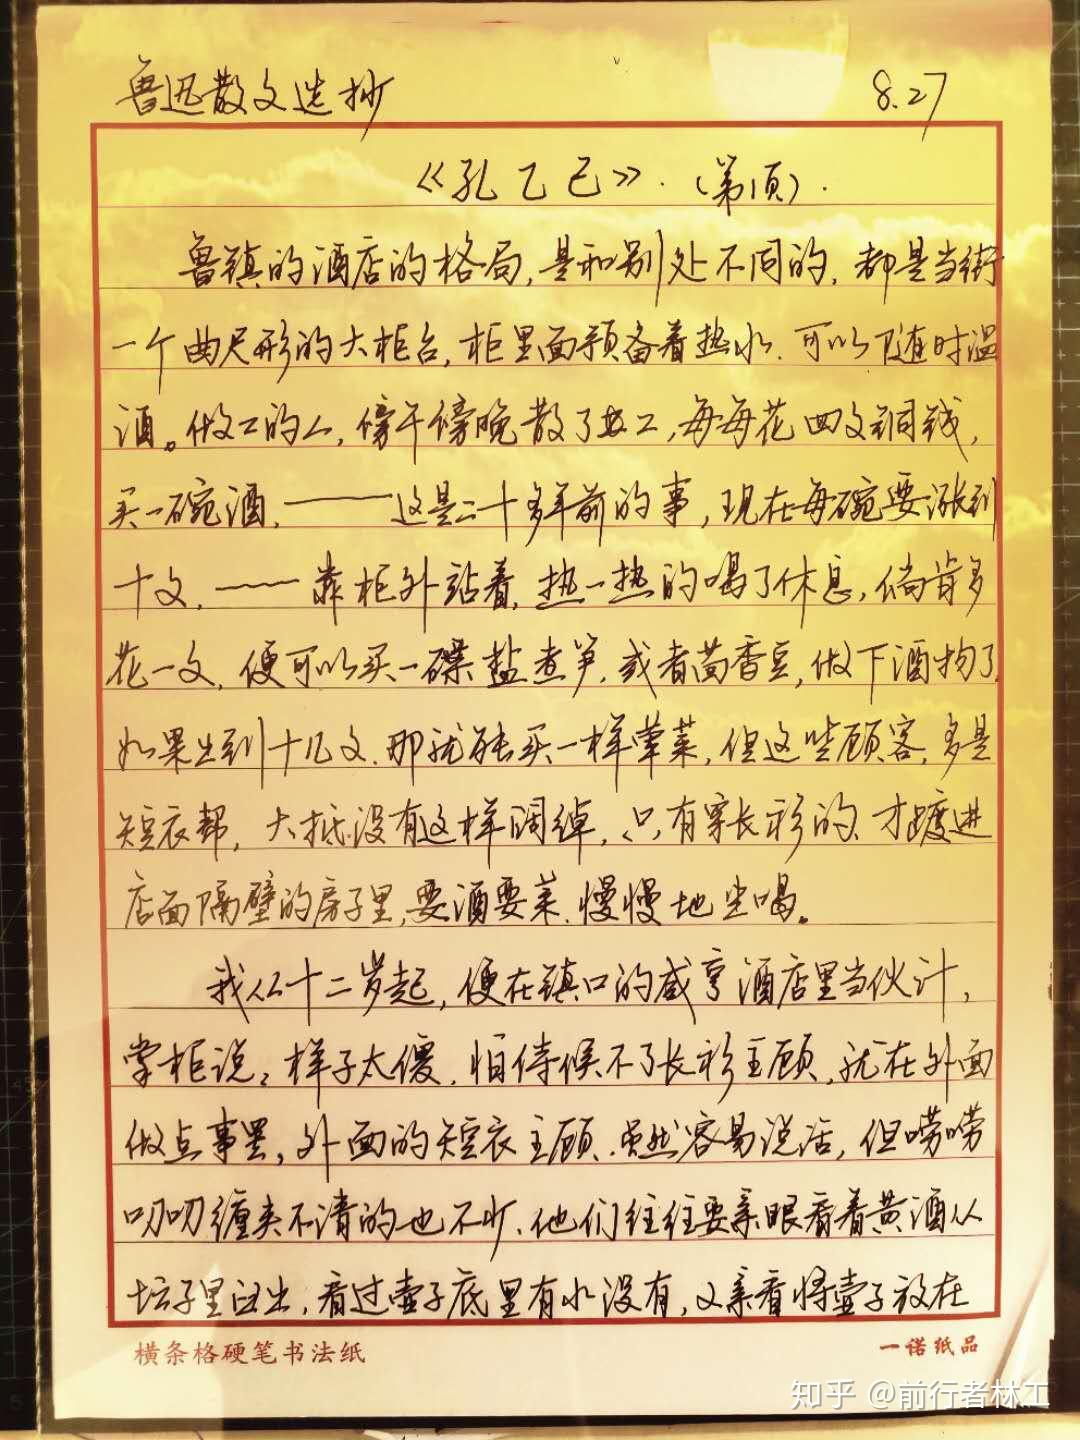 鲁迅散文选抄 8.27
《孔乙己》.(第1页).
鲁镇的酒店的格局,是和别处不同的,都是当街
一个曲尺形的大柜台,柜里面预备着热水,可以随时温
酒。做工的人,傍午傍晚散了工,每每花四文铜钱,
买一碗酒,——这是二十多年前的事,现在每碗要涨到
十文,——靠柜外站着,热一热的喝了休息,倘肯多
花一文,便可以买一碟盐煮笋,或者茴香豆,做下酒物了,
如果出到十几文,那就能买一样荤菜,但这些顾客,多是
短衣帮,大抵没有这样阔绰,只有穿长衫的,才踱进
店面隔壁的房子里,要酒要菜,慢慢地坐喝。
我从十二岁起,便在镇口的咸亨酒店里当伙计,
掌柜说,样子太傻,怕侍候不了长衫主顾,就在外面
做点事罢,外面的短衣主顾,虽然容易说话,但唠唠
叨叨缠夹不清的也不少,他们往往要亲眼看着黄酒从
坛子里舀出,看过壶子底里有水没有,又亲看将壶子放在
横条格硬笔书法纸 一诺纸品
知乎 @前行者林工